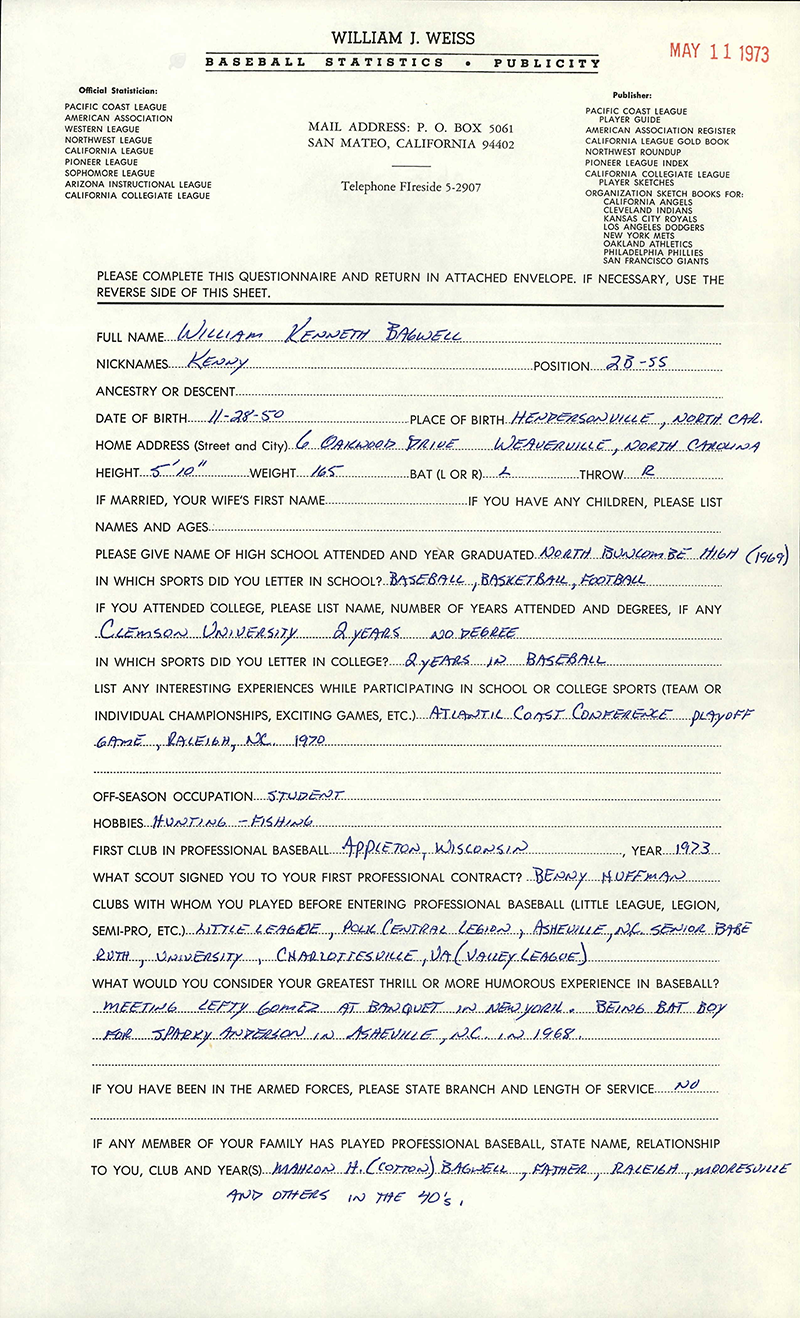 WILLIAM J. WEISS
BASEBALL STATISTICS • PUBLICITY
MAY 11 1973
Official Statistician:
PACIFIC COAST LEAGUE
AMERICAN ASSOCIATION
WESTERN LEAGUE
NORTHWEST LEAGUE
CALIFORNIA LEAGUE
PIONEER LEAGUE
SOPHOMORE LEAGUE
ARIZONA INSTRUCTIONAL LEAGUE
CALIFORNIA COLLEGIATE LEAGUE
MAIL ADDRESS: P. O. BOX 5061
SAN MATEO, CALIFORNIA 94402
Telephone FIreside 5-2907
Publisher:
PACIFIC COAST LEAGUE
PLAYER GUIDE
AMERICAN ASSOCIATION REGISTER
CALIFORNIA LEAGUE GOLD BOOK
NORTHWEST ROUNDUP
PIONEER LEAGUE INDEX
CALIFORNIA COLLEGIATE LEAGUE
PLAYER SKETCHES
ORGANIZATION SKETCH BOOKS FOR:
CALIFORNIA ANGELS
CLEVELAND INDIANS
KANSAS CITY ROYALS
LOS ANGELES DODGERS
NEW YORK METS
OAKLAND ATHLETICS
PHILADELPHIA PHILLIES
SAN FRANCISCO GIANTS
PLEASE COMPLETE THIS QUESTIONNAIRE AND RETURN IN ATTACHED ENVELOPE. IF NECESSARY, USE THE
REVERSE SIDE OF THIS SHEET.
FULL NAME WILLIAM KENNETH BAGWELL
NICKNAMES KENNY POSITION 2B-SS
ANCESTRY OR DESCENT
DATE OF BIRTH 11-28-50 PLACE OF BIRTH HENDERSONVILLE, NORTH CAR.
HOME ADDRESS (Street and City) 6 OAKWOOD DRIVE WEAVERVILLE, NORTH CAROLINA
HEIGHT 5'10" WEIGHT 165 BAT (L OR R) L THROW R
IF MARRIED, YOUR WIFE'S FIRST NAME IF YOU HAVE ANY CHILDREN, PLEASE LIST
NAMES AND AGES
PLEASE GIVE NAME OF HIGH SCHOOL ATTENDED AND YEAR GRADUATED NORTH BUNCOMBE HIGH (1969)
IN WHICH SPORTS DID YOU LETTER IN SCHOOL? BASEBALL, BASKETBALL, FOOTBALL
IF YOU ATTENDED COLLEGE, PLEASE LIST NAME, NUMBER OF YEARS ATTENDED AND DEGREES, IF ANY
CLEMSON UNIVERSITY 2 YEARS NO DEGREE
IN WHICH SPORTS DID YOU LETTER IN COLLEGE? 2 YEARS IN BASEBALL
LIST ANY INTERESTING EXPERIENCES WHILE PARTICIPATING IN SCHOOL OR COLLEGE SPORTS (TEAM OR
INDIVIDUAL CHAMPIONSHIPS, EXCITING GAMES, ETC.) ATLANTIC COAST CONFERENCE PLAYOFF
GAME, RALEIGH, N.C. 1970
OFF-SEASON OCCUPATION STUDENT
HOBBIES HUNTING - FISHING
FIRST CLUB IN PROFESSIONAL BASEBALL APPLETON, WISCONSIN, YEAR 1973
WHAT SCOUT SIGNED YOU TO YOUR FIRST PROFESSIONAL CONTRACT? BENNY HUFFMAN
CLUBS WITH WHOM YOU PLAYED BEFORE ENTERING PROFESSIONAL BASEBALL (LITTLE LEAGUE, LEGION,
SEMI-PRO, ETC.) LITTLE LEAGUE, POLK CENTRAL LEGION, ASHEVILLE, N.C. SENIOR BABE
RUTH, UNIVERSITY, CHARLOTTESVILLE, VA (VALLEY LEAGUE)
WHAT WOULD YOU CONSIDER YOUR GREATEST THRILL OR MORE HUMOROUS EXPERIENCE IN BASEBALL?
MEETING LEFTY GOMEZ AT BANQUET IN NEW YORK. BEING BAT BOY
FOR SPARKY ANDERSON IN ASHEVILLE, N.C. IN 1968.
IF YOU HAVE BEEN IN THE ARMED FORCES, PLEASE STATE BRANCH AND LENGTH OF SERVICE NO
IF ANY MEMBER OF YOUR FAMILY HAS PLAYED PROFESSIONAL BASEBALL, STATE NAME, RELATIONSHIP
TO YOU, CLUB AND YEAR(S) MAHLON H. (COTTON) BAGWELL, FATHER, RALEIGH, MOORESVILLE
AND OTHERS IN THE 40's.